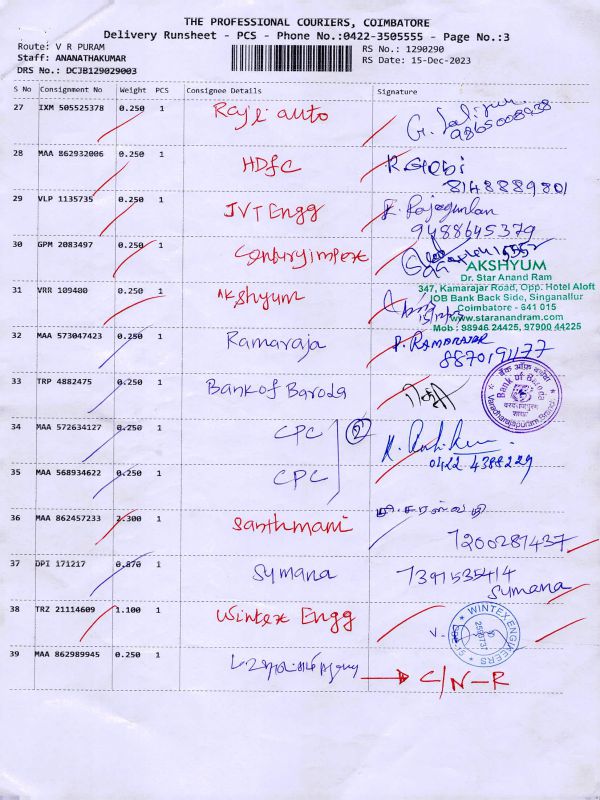 THE PROFESSIONAL COURIERS, COIMBATORE
Delivery Runsheet - PCS - Phone No.:0422-3505555 - Page No.:3
Route: V R PURAM
RS No.: 1290290
Staff: ANANATHAKUMAR
RS Date: 15-Dec-2023
DRS No.: DCJB129029003
S No Consignment No Weight PCS Consignee Details Signature
27 IXM 505525378 0.250 1 Raji auto
9865008938
28 MAA 862932006 0.250 1 HDFC R. Gobi
8148889801
29 VLP 1135735 0.250 1 JVT Engg
9488645379
30 GPM 2083497 0.250 1 Centuryimpex
AKSHYUM
Dr. Star Anand Ram
347, Kamarajar Road, Opp. Hotel Aloft
IOB Bank Back Side, Singanallur
Coimbatore - 641 015
www.staranandram.com
Mob : 98946 24425, 97900 44225
31 VRR 109480 0.250 1 Akshyum
32 MAA 573047423 0.250 1 Ramaraja P. RAMARAJAR
8870191177
33 TRP 4882475 0.250 1 Bank of Baroda
बैंक ऑफ़ बड़ौदा
Bank of Baroda
Varadharajapuram Branch
34 MAA 572634127 0.250 1 CPC 2
0422 4388229
35 MAA 568934622 0.250 1 CPC
36 MAA 862457233 2.300 1 Santhmani
7200287437
37 DPI 171217 0.870 1 Symana 7397535414
Symana
38 TRZ 21114609 1.100 1 Wintex Engg
WINTEX ENGINEERS
39 MAA 862989945 0.250 1 C/N-R